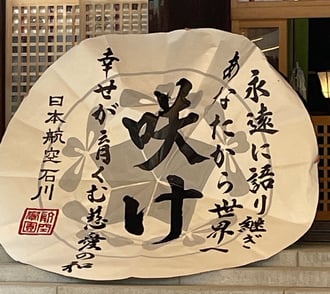 永遠に語り継ぎ
あなたから世界へ
咲け
幸せが育くむ慈愛の和
日本航空石川